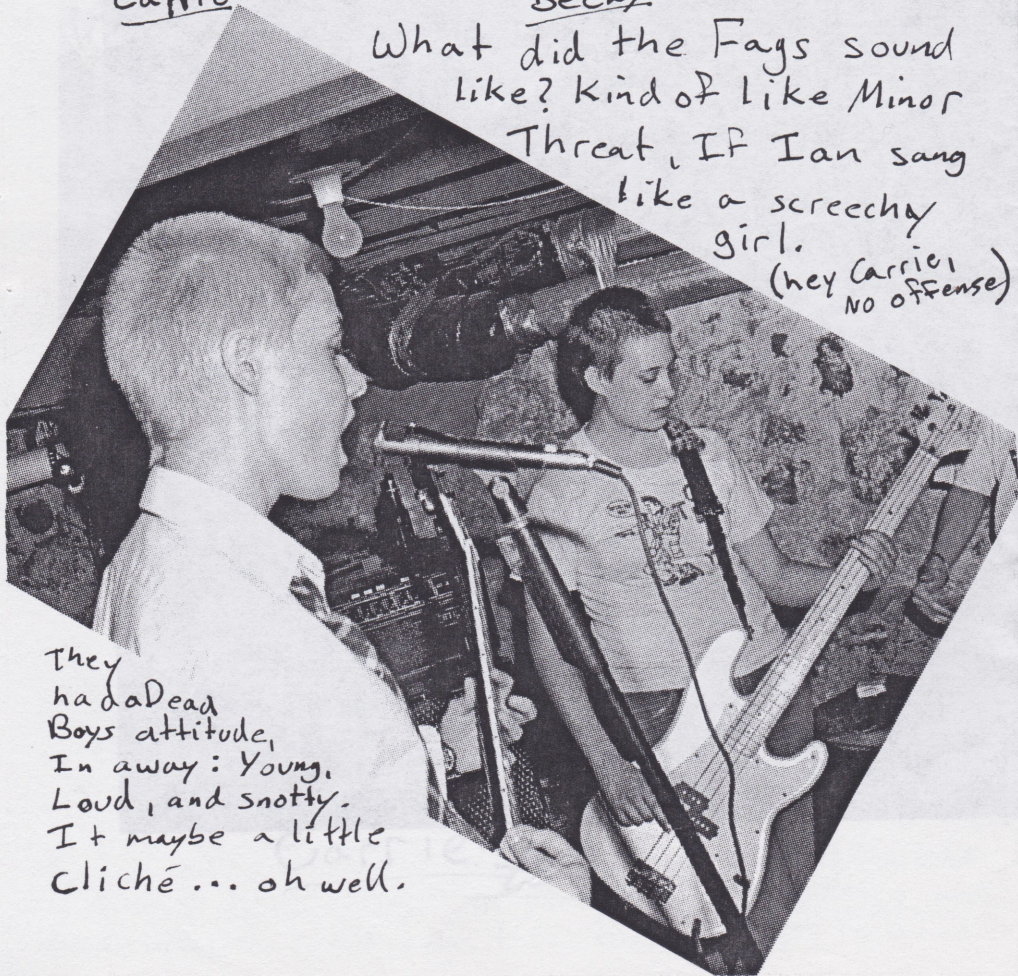 Becky
What did the Fags sound
like? Kind of like Minor
Threat, If Ian sang
like a screechy
girl.
(hey Carrie,
No offense)
They
had a Dead
Boys attitude,
In away: Young,
Loud, and snotty.
It maybe a little
cliché... oh well.